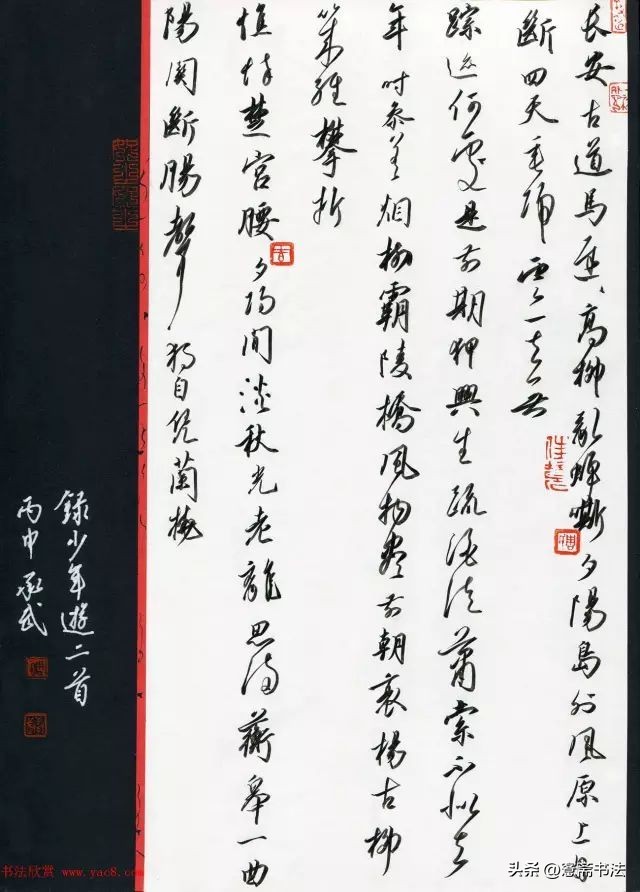 长安古道馬迟、高柳亂蝉嘶夕陽島外风原上目
斷四天垂歸雲一去無
蹤迹何處是前期狎興生疏酒徒蕭索不似去
年时参差烟树霸陵橋风物尽前朝衰楊古柳
幾经攀折
憔悴楚宮腰夕阳閒淡秋光老離思滿蘅皋一曲
陽関斷腸聲獨自凭蘭橈
錄少年遊二首
丙申承武
书法欣赏 www.yac8.com
头条 @寋斋书法